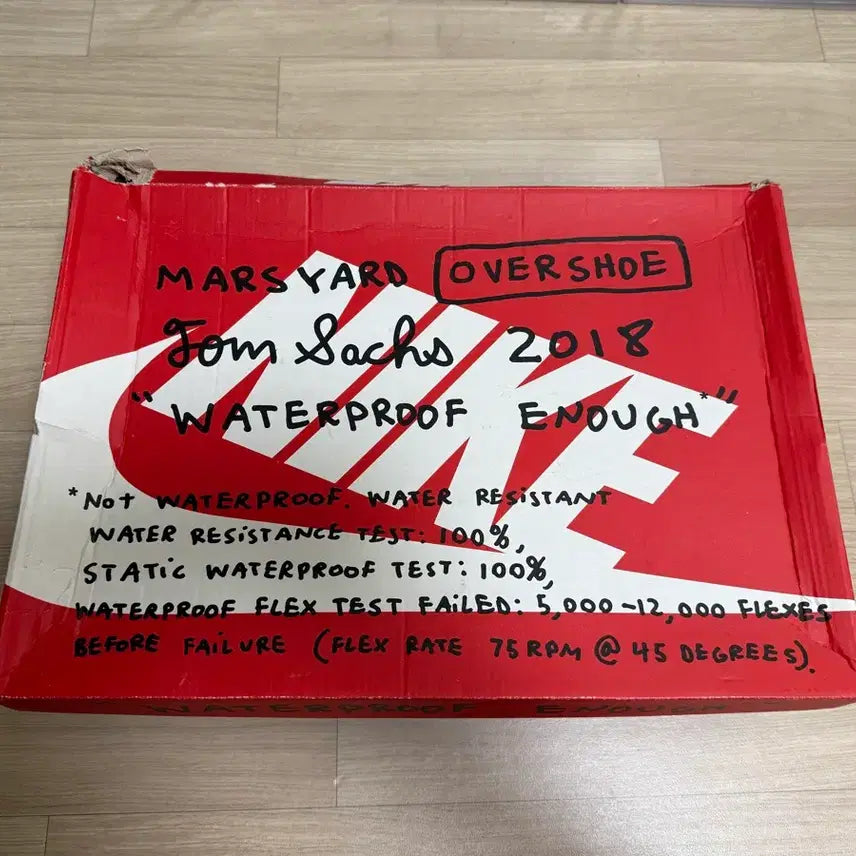 MARS YARD OVERSHOE
Tom Sachs 2018
"WATERPROOF ENOUGH*"
NIKE
*NOt WATERPROOF. WATER RESiSTANT
WATER RESiSTANCE TEST: 100%,
STATiC WATERPROOF TEST: 100%,
WATERPROOF FLEX TEST FAiLED: 5,000-12,000 FLEXES
BEFORE FAiLURE (FLEX RATE 75 RPM @ 45 DEGREES).
WATERPROOF ENOUGH